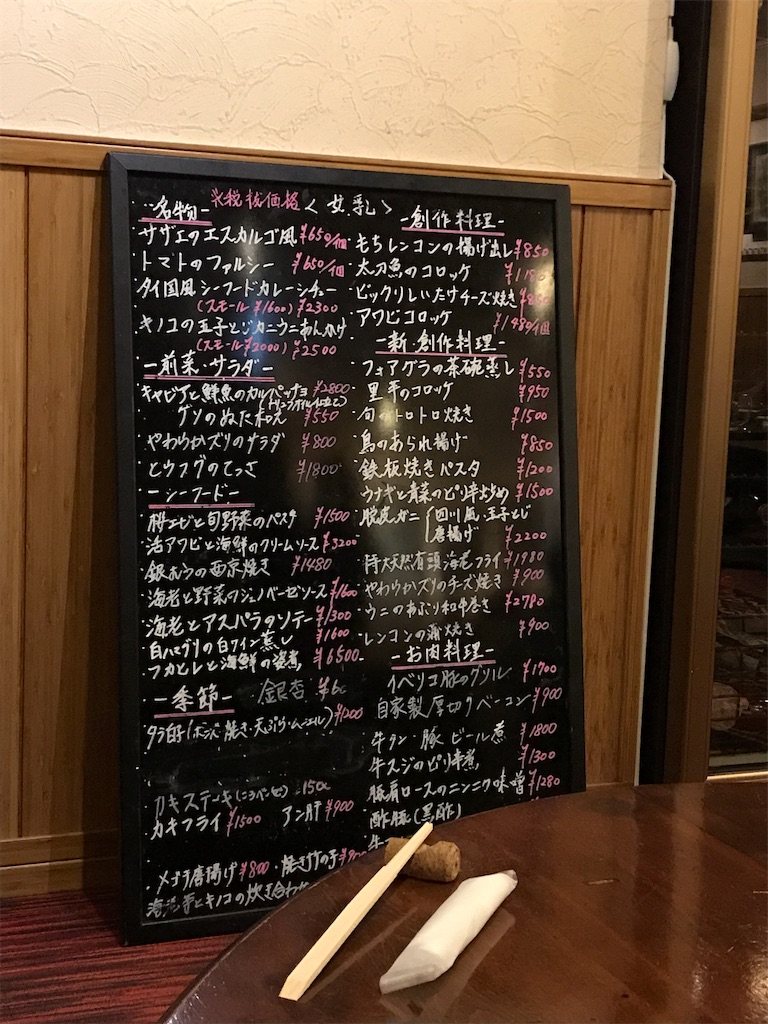 ※税抜価格
-名物-
サザエのエスカルゴ風 ¥650/1個
トマトのファルシー ¥650/1個
タイ国風シーフードカレーシチュー
(スモール ¥1600) ¥2300
キノコの玉子とじカニウニあんかけ
(スモール ¥2000) ¥2500
-前菜・サラダ-
キャビアと鮮魚のカルパッチョ ¥2800
ゲソのぬた和え ¥550
やわらかズリのサラダ ¥800
とらフグのてっさ ¥1800
-シーフード-
桝エビと旬野菜のパスタ ¥1500
活アワビと海鮮のクリームソース ¥3200
銀むつの西京焼き ¥1480
海老と野菜のジェノバーゼソース ¥1600
海老とアスパラのソテー ¥1300
白ハマグリの白ワイン蒸し ¥1600
フカヒレと海鮮の姿煮 ¥6500
-季節- 銀杏
タラ白子(ポン酢・焼き・天ぷら・ムニエル) ¥1200
カキステーキ
カキフライ ¥1500 アン肝 ¥900
・メゴチ唐揚げ ¥800 ・焼き竹の子
海老芋とキノコの炊き合わせ
-創作料理-
もちレンコンの揚げ出し ¥850
太刀魚のコロッケ ¥1180
ビックリしいたけチーズ焼き
アワビコロッケ ¥1480/1個
-新・創作料理-
フォアグラの茶碗蒸し ¥550
里芋のコロッケ ¥950
旬のトロトロ焼き ¥1500
鳥のあられ揚げ ¥850
鉄板焼きパスタ ¥1200
ウナギと青菜のピリ辛炒め ¥1500
脱皮ガニ 四川風・玉子とじ
唐揚げ ¥2200
特大天然有頭海老フライ ¥1980
やわらかズリのチーズ焼き ¥900
ウニのあぶり和牛巻き ¥2780
レンコンの蒲焼き ¥900
-お肉料理-
イベリコ豚のグリル ¥1700
自家製厚切りベーコン ¥900
牛タン・豚 ビール煮 ¥1800
牛スジのピリ辛煮 ¥1300
豚肩ロースのニンニク味噌 ¥1280
酢豚(黒酢)